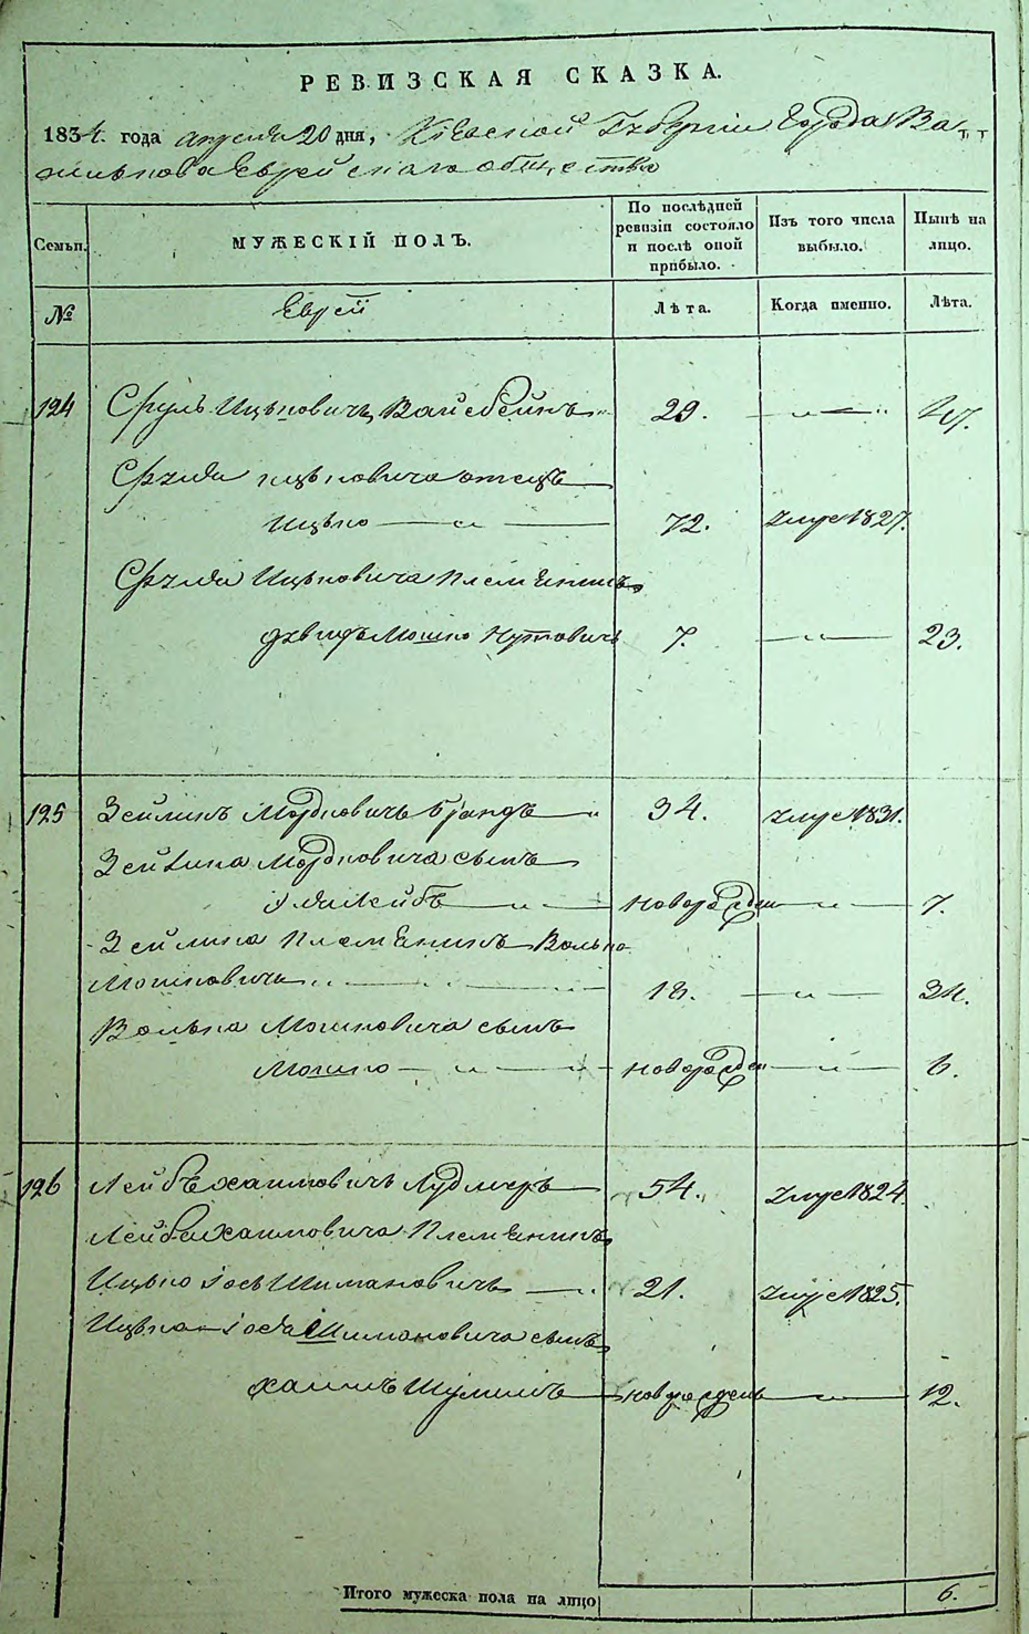 РЕВИЗСКАЯ СКАЗКА.
1834. года апреля 20 дня, Киевской Губернии Города Ва-
силькова Еврейскаго общества
Семьи. МУЖЕСКІЙ ПОЛЪ. По послѣдней ревизіи состояло и послѣ оной прибыло. Изъ того числа выбыло. Нынѣ на лицо.
№ Евреи Лѣта. Когда именно. Лѣта.
124 Сруль Ицьковичъ Вайсбейнъ 29. 
Сруля Ицьковича отецъ
Ицько 72. умре 1827.
Сруля Ицьковича Племенникъ
Давидъ Мошко Нутовичъ 7. 23.
125 Зейликъ Мордковичъ 34. умре 1831.
Зейлика Мордковича сынъ
новорожден 7.
Зейлика Племенникъ Волько
Мошковичъ 18. 34.
Волька Мошковича сынъ
Мошко новорожден 6.
126 Лейбъ Хаимовичъ 54. умре 1824.
Лейба Хаимовича Племенникъ
Ицько Іось Шимановичъ 21. умре 1825.
Ицька Іося Шимановича сынъ
Хаимъ новорожденъ 12.
Итого мужеска пола на лицо 6.